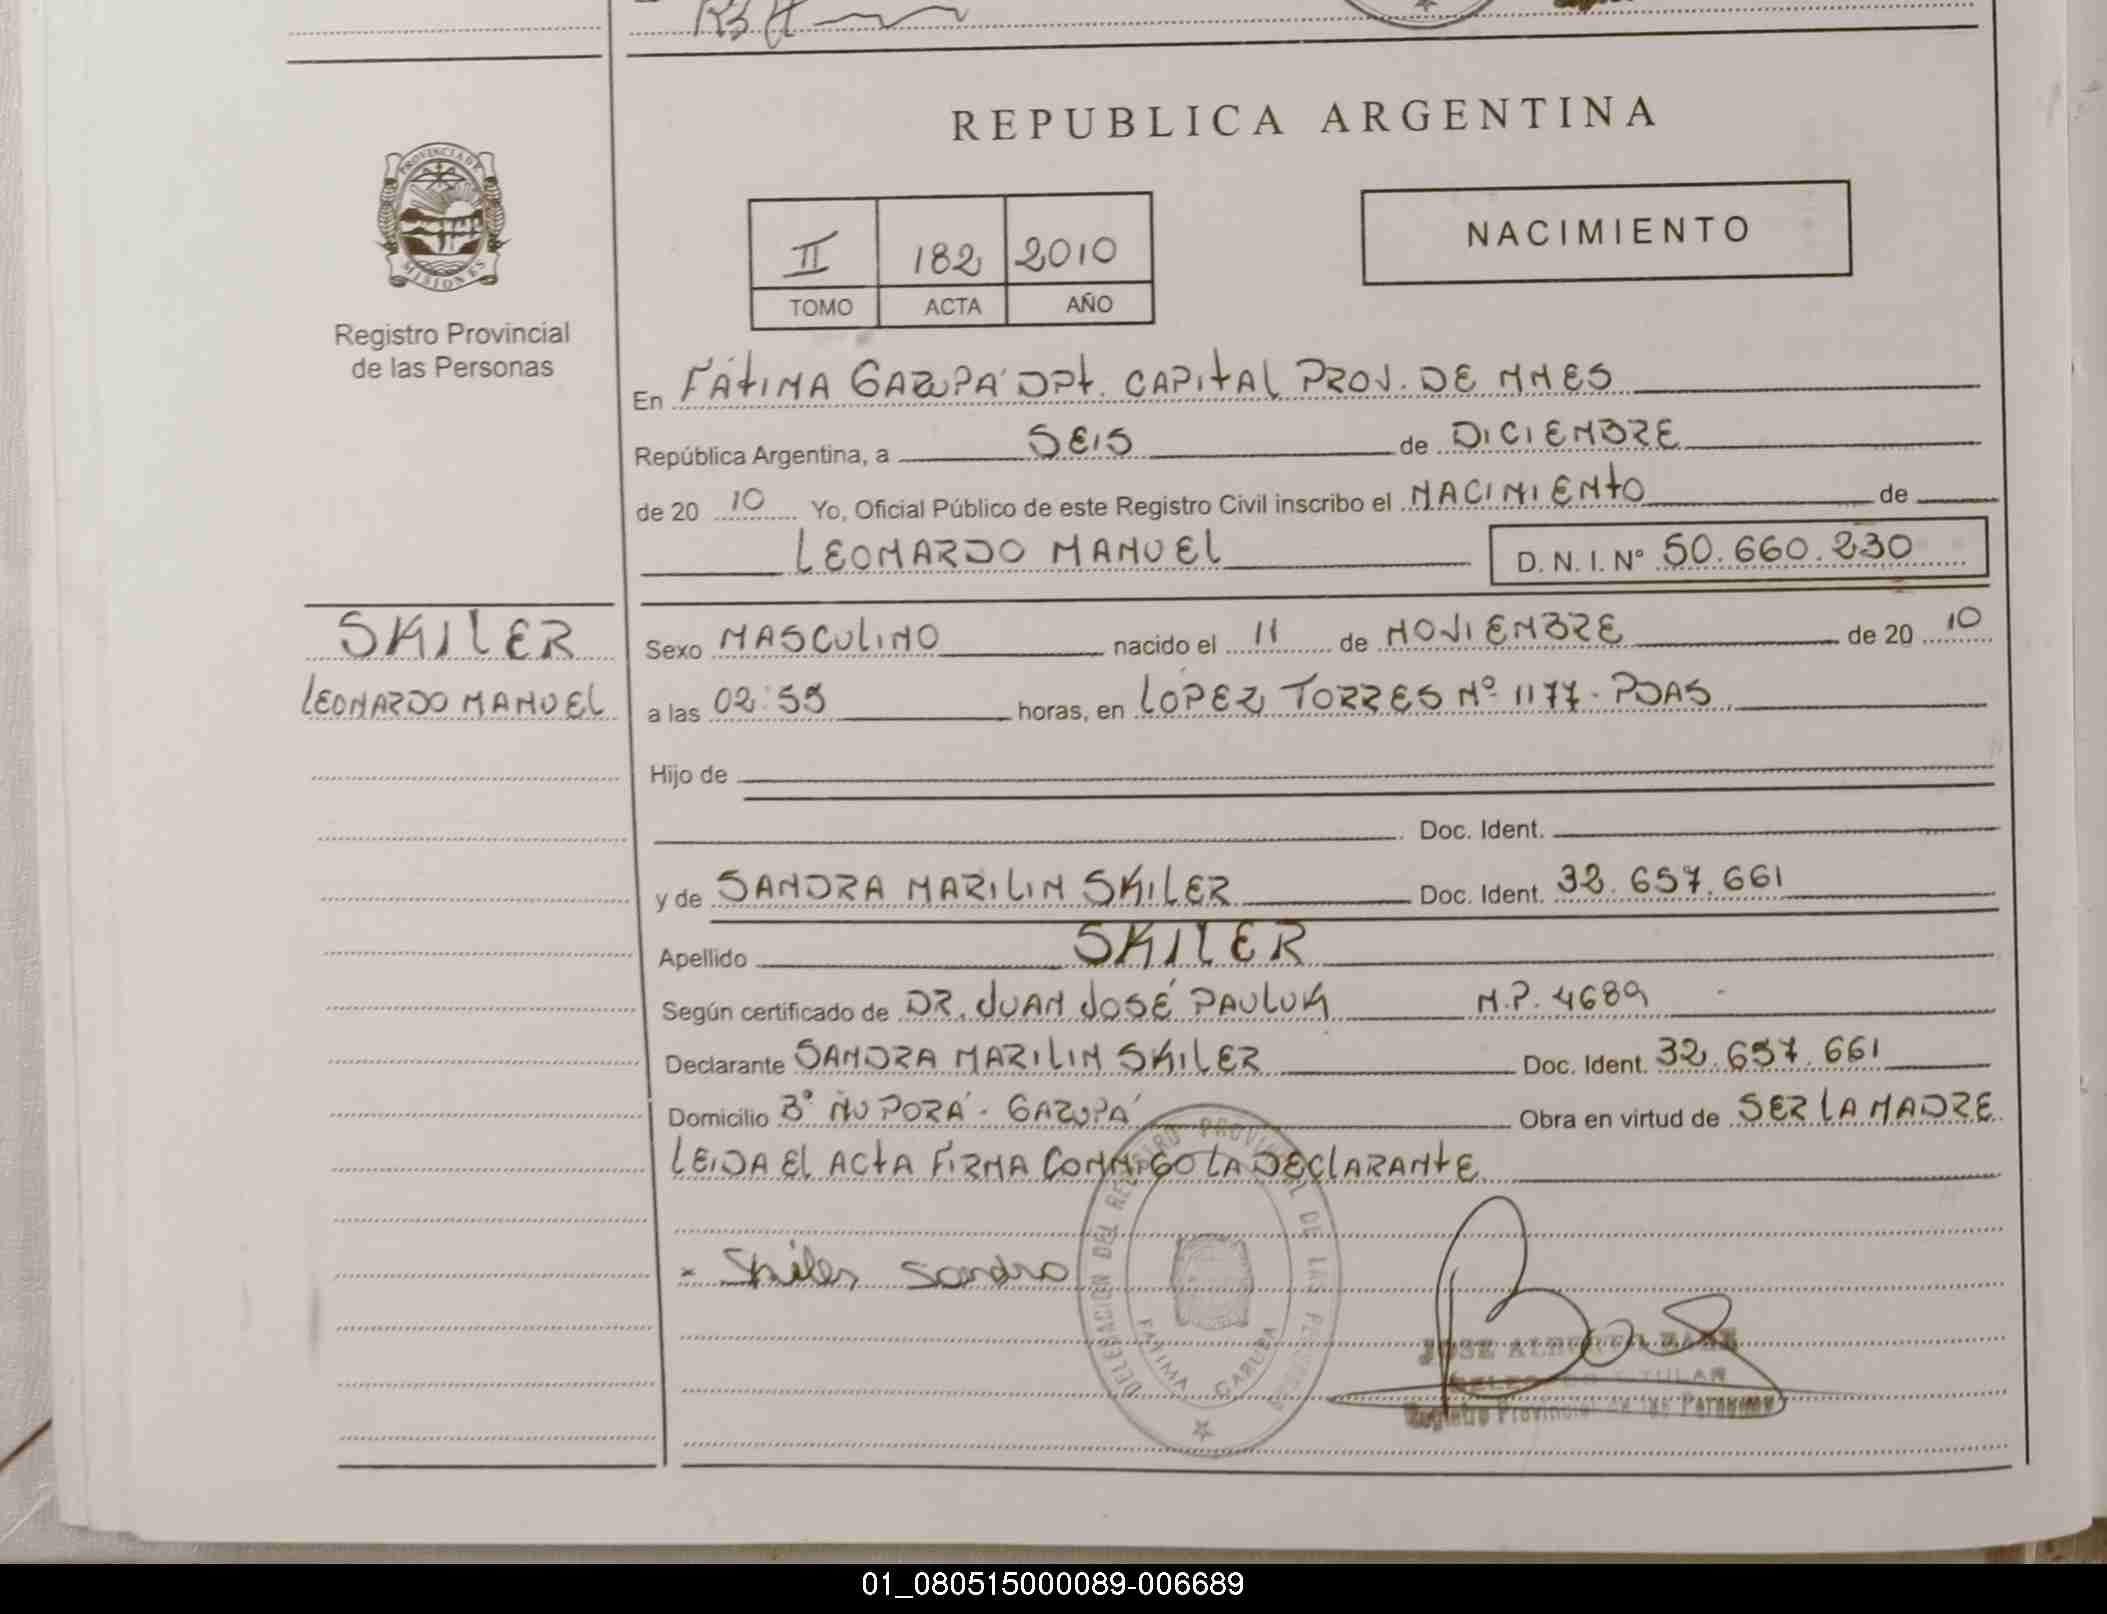 REPUBLICA ARGENTINA
PROVINCIA DE
MISIONES
Registro Provincial
de las Personas
II 182 2010
TOMO ACTA AÑO
NACIMIENTO
En FÁTIMA GARUPÁ DPT. CAPITAL PROV. DE MNES
República Argentina, a SEIS de DICIEMBRE
de 20 10 Yo, Oficial Público de este Registro Civil inscribo el NACIMIENTO de
LEONARDO MANUEL D. N. I. Nº 50.660.230
SKILER
LEONARDO MANUEL
Sexo MASCULINO nacido el 11 de NOVIEMBRE de 20 10
a las 02:55 horas, en LÓPEZ TORRES Nº 1177. PDAS
Hijo de
Doc. Ident.
y de SANDRA MARILIN SKILER Doc. Ident. 32.657.661
Apellido SKILER
Según certificado de DR. JUAN JOSÉ PAULUK M.P. 4689
Declarante SANDRA MARILIN SKILER Doc. Ident. 32.657.661
Domicilio Bº ÑU PORÁ - GARUPÁ Obra en virtud de SER LA MADRE
LEIDA EL ACTA FIRMA CONMIGO LA DECLARANTE
Skiler Sandra
DELEGACION DEL REGISTRO PROVINCIAL DE LAS PERSONAS
FATIMA GARUPA
JOSE ALBERTO
TITULAR
Registro Provincial de las Personas
01_080515000089-006689